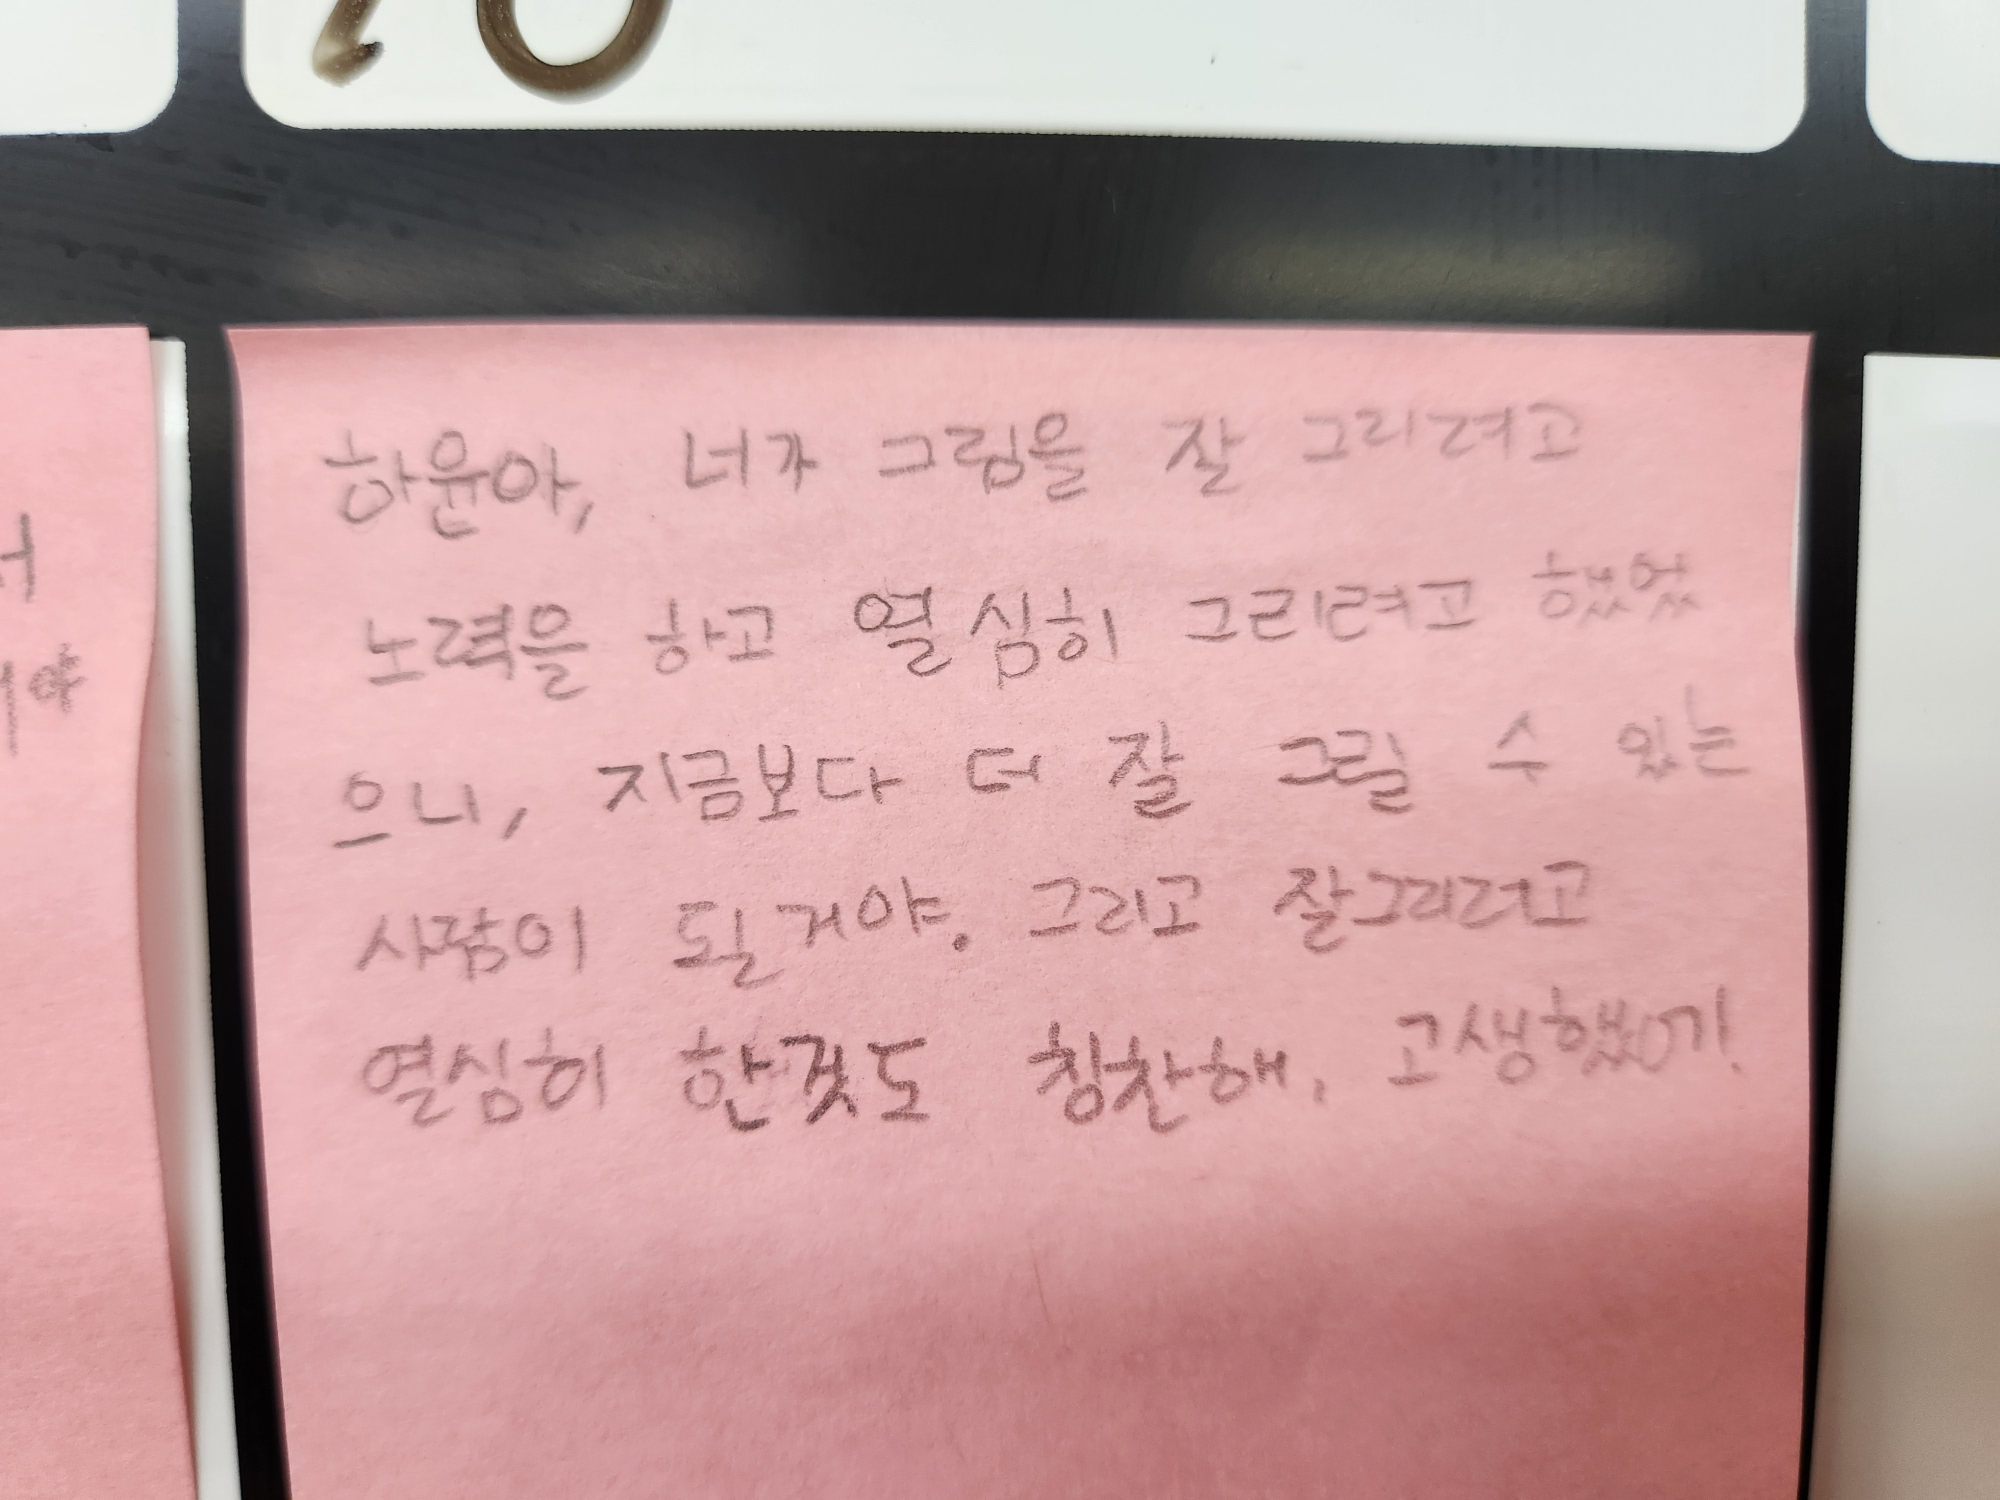 하윤아, 너가 그림을 잘 그리려고
노력을 하고 열심히 그리려고 했었
으니, 지금보다 더 잘 그릴 수 있는
사람이 될거야. 그리고 잘그리려고
열심히 한것도 칭찬해. 고생했어!